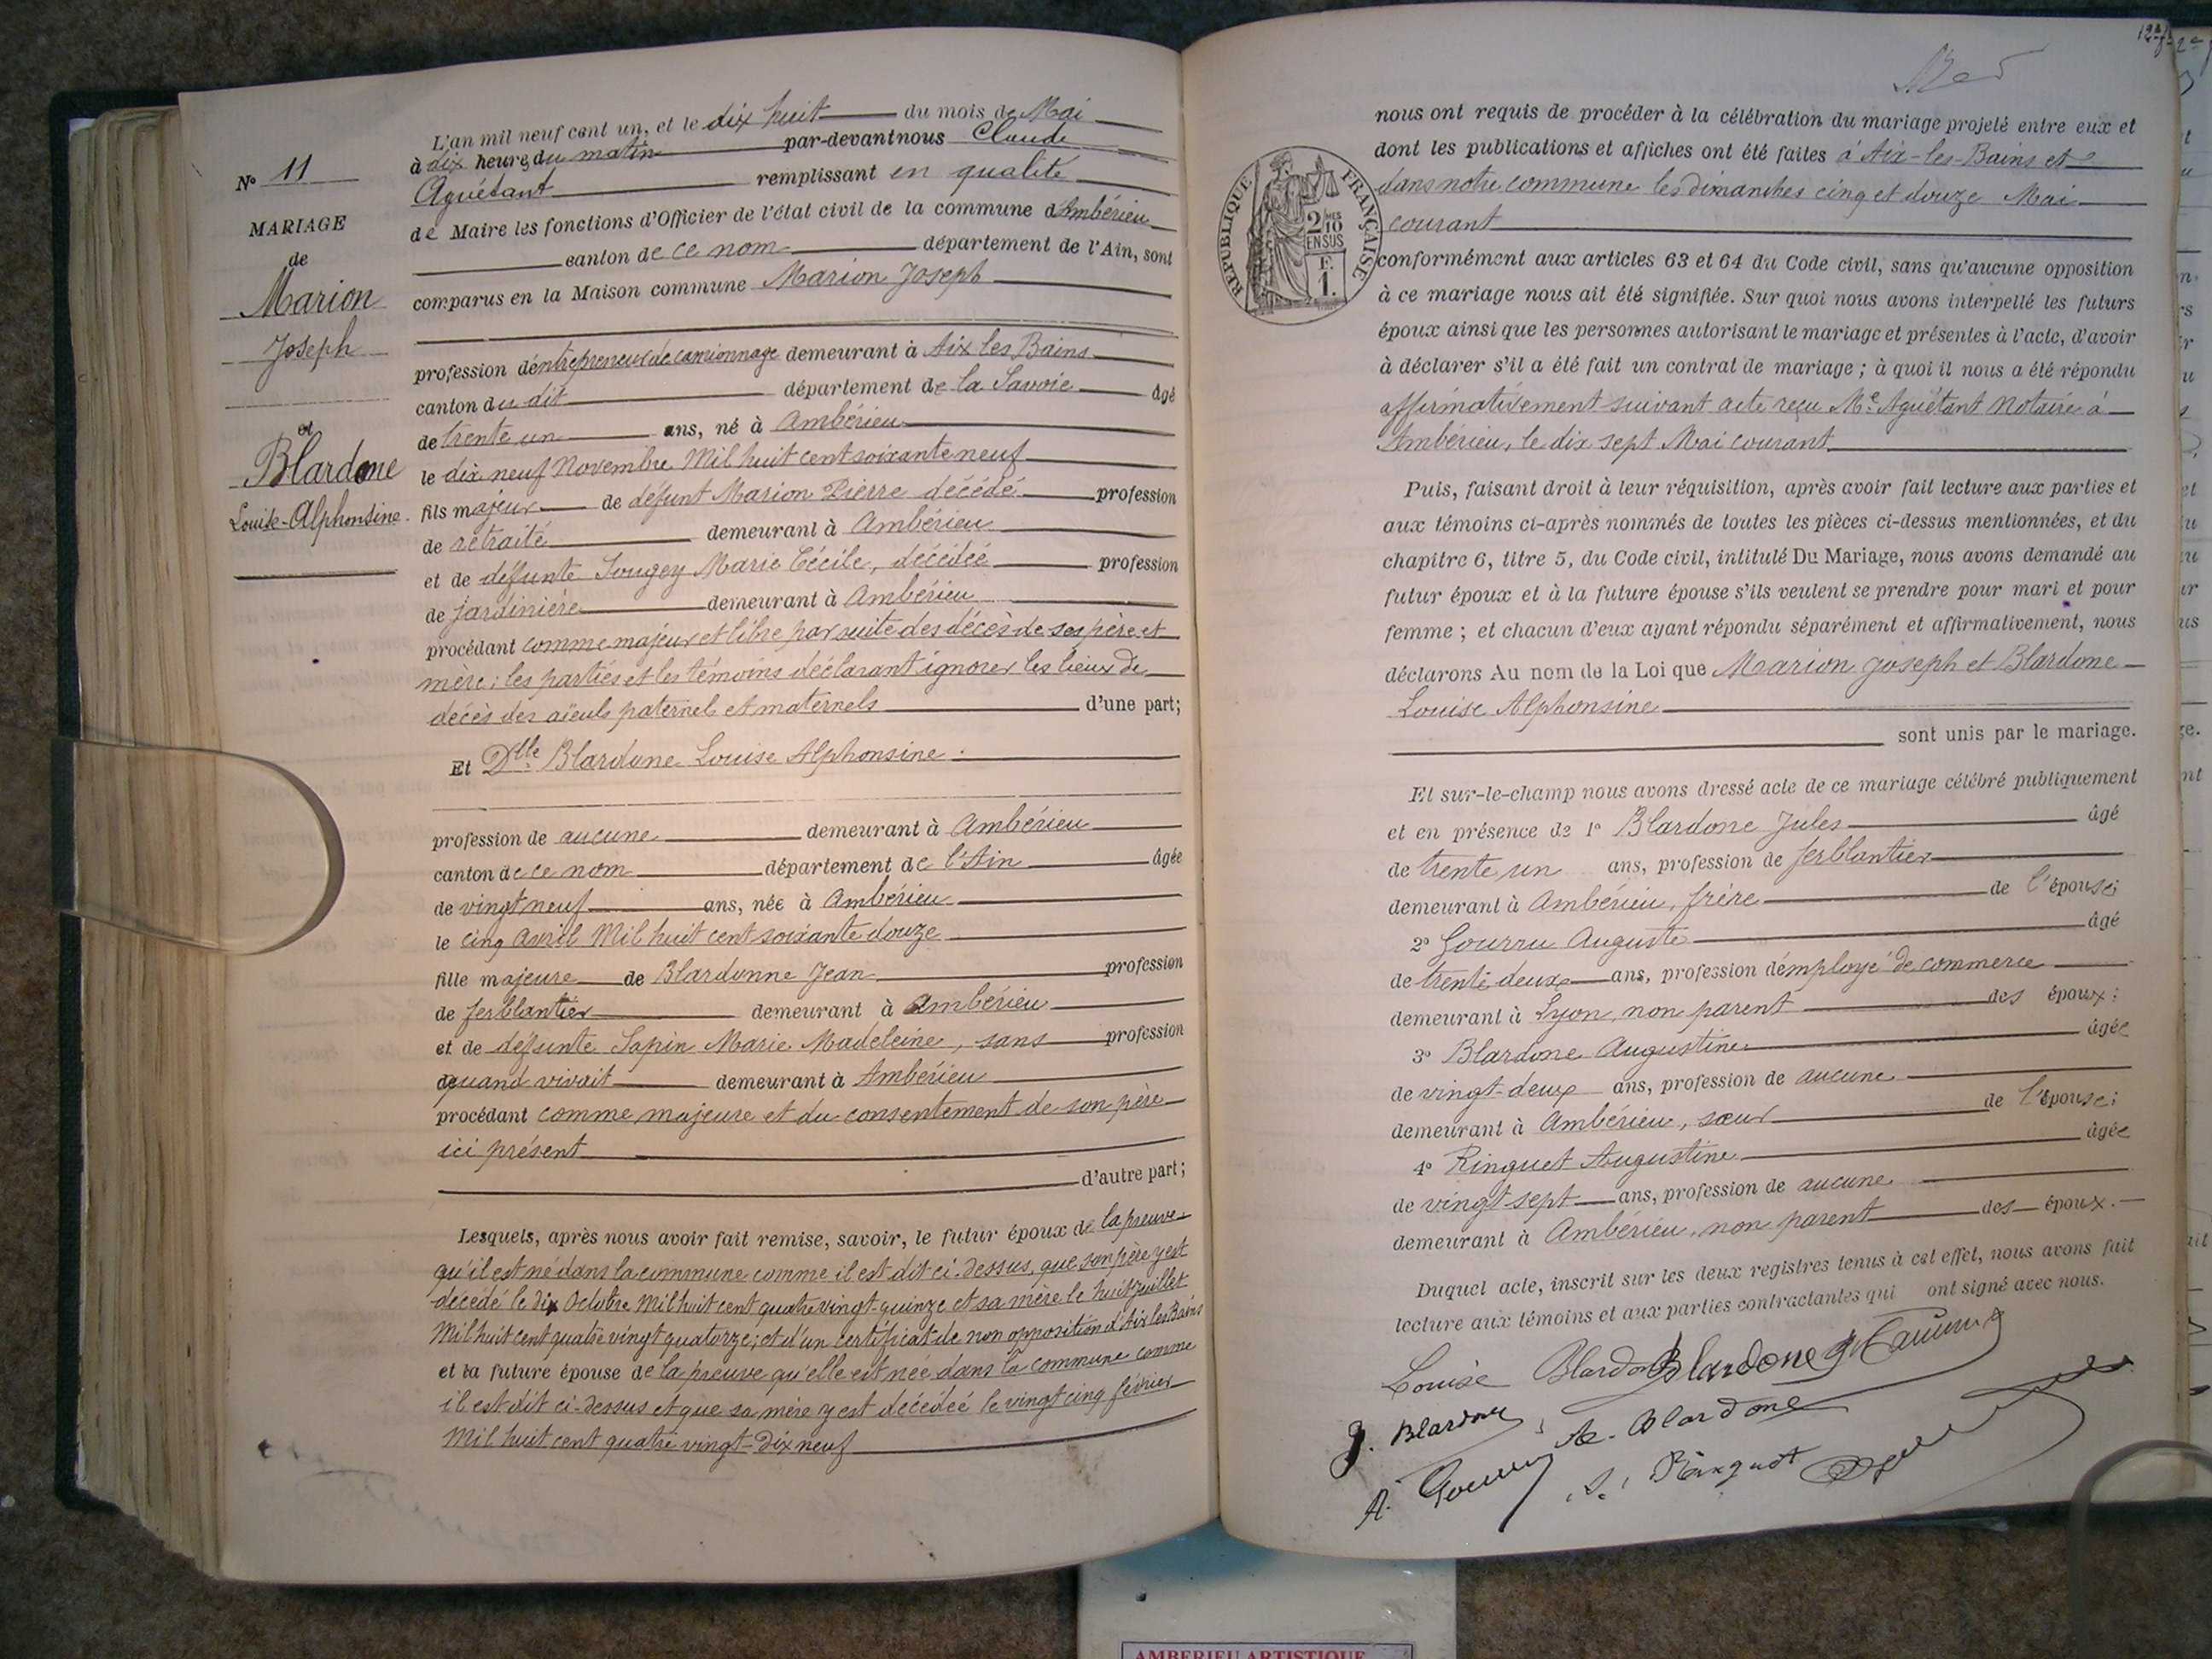 N° 11
MARIAGE
de
Marion
Joseph
et
Blardone
Louise-Alphonsine
L'an mil neuf cent un, et le dix huit du mois de Mai
à dix heures du matin par-devant nous Claude
Aguétant remplissant en qualité
de Maire les fonctions d'Officier de l'état civil de la commune d'Ambérieu
canton de ce nom département de l'Ain, sont
comparus en la Maison commune Marion Joseph
profession d'entrepreneur de camionnage demeurant à Aix les Bains
canton du dit département de la Savoie âgé
de trente un ans, né à Ambérieu
le dix neuf Novembre Mil huit cent soixante neuf
fils majeur de défunt Marion Pierre décédé profession
de retraité demeurant à Ambérieu
et de défunte Sougey Marie Cécile, décédée profession
de jardinière demeurant à Ambérieu
procédant comme majeur et libre par suite des décès de ses père et
mère; les parties et les témoins déclarant ignorer les lieux de
décès des aïeuls paternels et maternels d'une part;
Et Dlle Blardone Louise Alphonsine
profession de aucune demeurant à Ambérieu
canton de ce nom département de l'Ain âgée
de vingt neuf ans, née à Ambérieu
le cinq Avril Mil huit cent soixante douze
fille majeure de Blardonne Jean profession
de ferblantier demeurant à Ambérieu
et de défunte Sapin Marie Madeleine, sans profession
quand vivait demeurant à Ambérieu
procédant comme majeure et du consentement de son père
ici présent
d'autre part;
Lesquels, après nous avoir fait remise, savoir, le futur époux de la preuve
qu'il est né dans la commune comme il est dit ci-dessus, que son père y est
décédé le dix Octobre Mil huit cent quatre vingt-quinze et sa mère le huit juillet
Mil huit cent quatre vingt quatorze; et d'un certificat de non opposition d'Aix les Bains
et la future épouse de la preuve qu'elle est née dans la commune comme
il est dit ci-dessus et que sa mère y est décédée le vingt cinq février
Mil huit cent quatre vingt-dix neuf
nous ont requis de procéder à la célébration du mariage projeté entre eux et
dont les publications et affiches ont été faites à Aix-les-Bains et
dans notre commune les dimanches cinq et douze Mai
courant
RÉPUBLIQUE FRANÇAISE
2/10 MES
EN SUS
F.
1.
conformément aux articles 63 et 64 du Code civil, sans qu'aucune opposition
à ce mariage nous ait été signifiée. Sur quoi nous avons interpellé les futurs
époux ainsi que les personnes autorisant le mariage et présentes à l'acte, d'avoir
à déclarer s'il a été fait un contrat de mariage ; à quoi il nous a été répondu
affirmativement suivant acte reçu Me Aguétant Notaire à
Ambérieu, le dix sept Mai courant
Puis, faisant droit à leur réquisition, après avoir fait lecture aux parties et
aux témoins ci-après nommés de toutes les pièces ci-dessus mentionnées, et du
chapitre 6, titre 5, du Code civil, intitulé Du Mariage, nous avons demandé au
futur époux et à la future épouse s'ils veulent se prendre pour mari et pour
femme ; et chacun d'eux ayant répondu séparément et affirmativement, nous
déclarons Au nom de la Loi que Marion Joseph et Blardone
Louise Alphonsine
sont unis par le mariage.
Et sur-le-champ nous avons dressé acte de ce mariage célébré publiquement
et en présence de 1° Blardone Jules âgé
de trente un ans, profession de ferblantier
demeurant à Ambérieu, frère de l'épouse;
2° Gourru Auguste âgé
de trente deux ans, profession d'employé de commerce
demeurant à Lyon, non parent des époux;
3° Blardone Augustine âgée
de vingt-deux ans, profession de aucune
demeurant à Ambérieu, sœur de l'épouse;
4° Ringuet Augustine âgée
de vingt sept ans, profession de aucune
demeurant à Ambérieu, non parent des époux.
Duquel acte, inscrit sur les deux registres tenus à cet effet, nous avons fait
lecture aux témoins et aux parties contractantes qui ont signé avec nous.
Louise Blardone Blardone
J. Blardone A. Blardone
A. Gourru Ringuet
AMBERIEU ARTISTIQUE